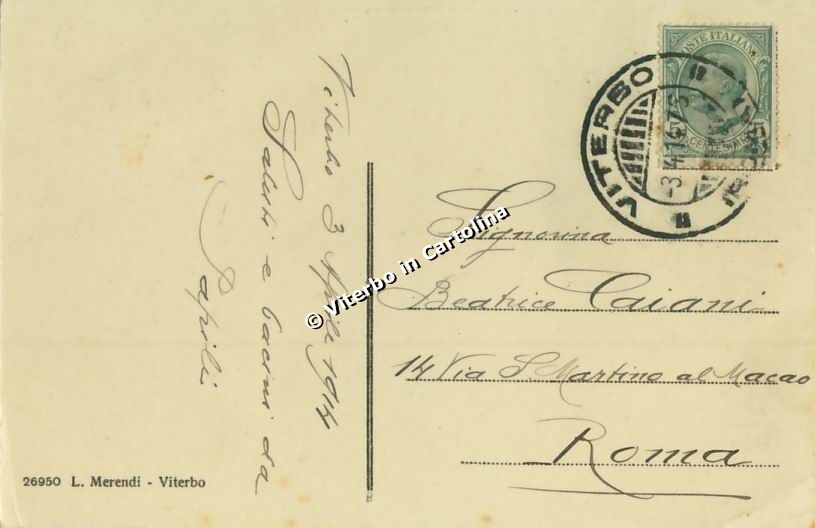 Viterbo 3 Aprile 1914
Saluti e bacini da
POSTE ITALIANE
CENTESIMI
VITERBO
-3.4.14
Signorina
Beatrice Caiani
14 Via S. Martino al Macao
Roma
© Viterbo in Cartolina
26950 L. Merendi - Viterbo